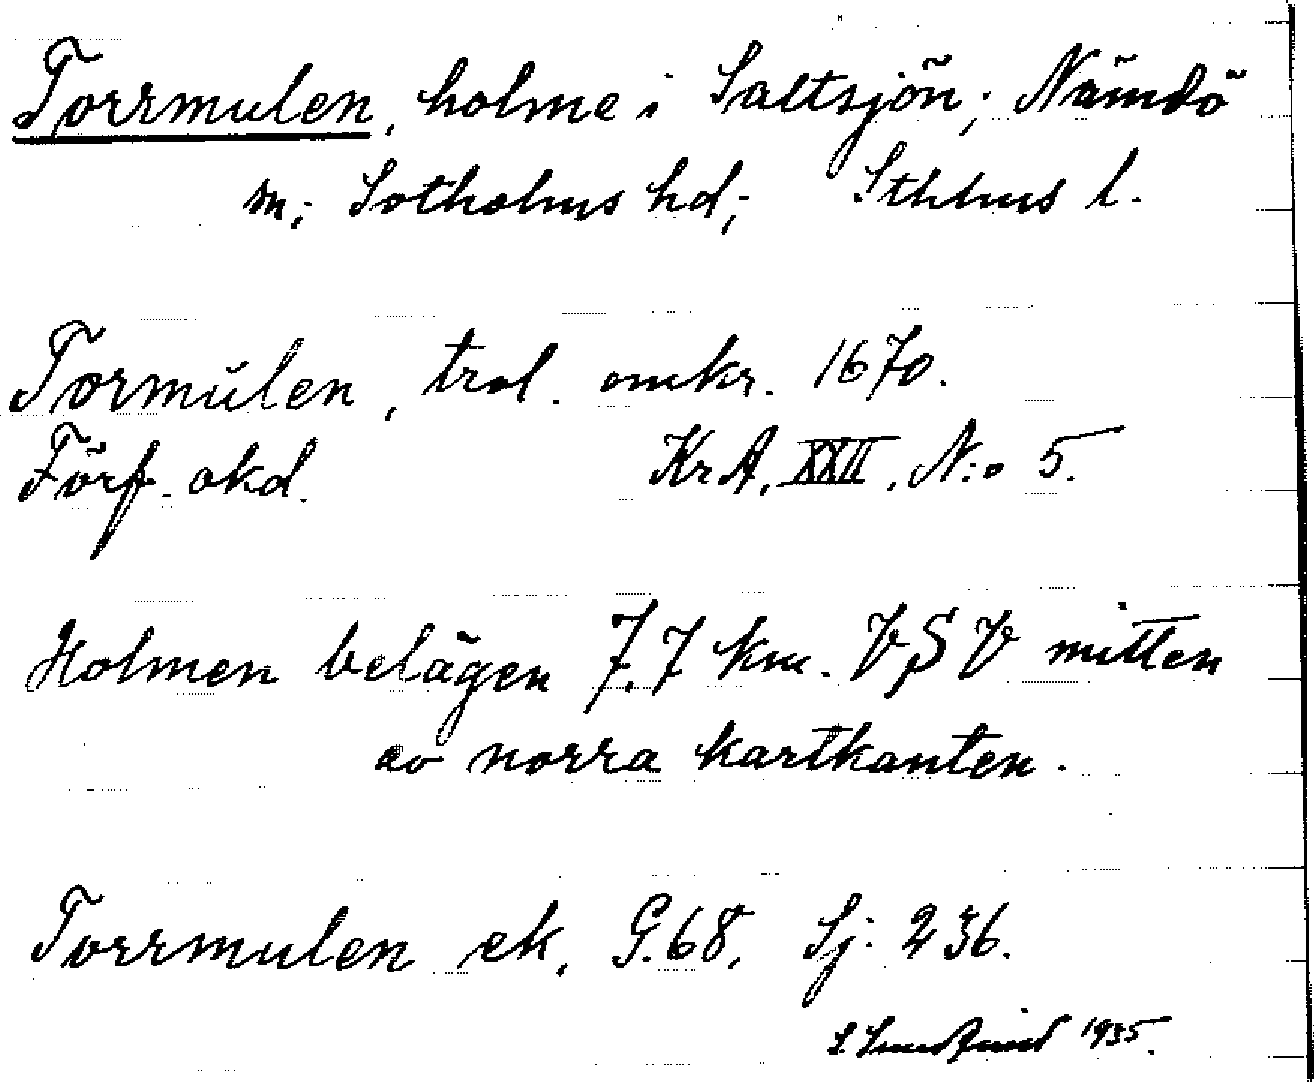 Torrmulen, holme i Saltsjön; Nämdö
m; Sotholms hd; Sthlms l.
Tormŭlen, trol. omkr. 1670.
Förf. okd. KrA, XXII, N:o 5.
Holmen belägen 7,7 km. VSV mitten
av norra kartkanten.
Torrmulen ek. G.68, Sj: 236.
1935.